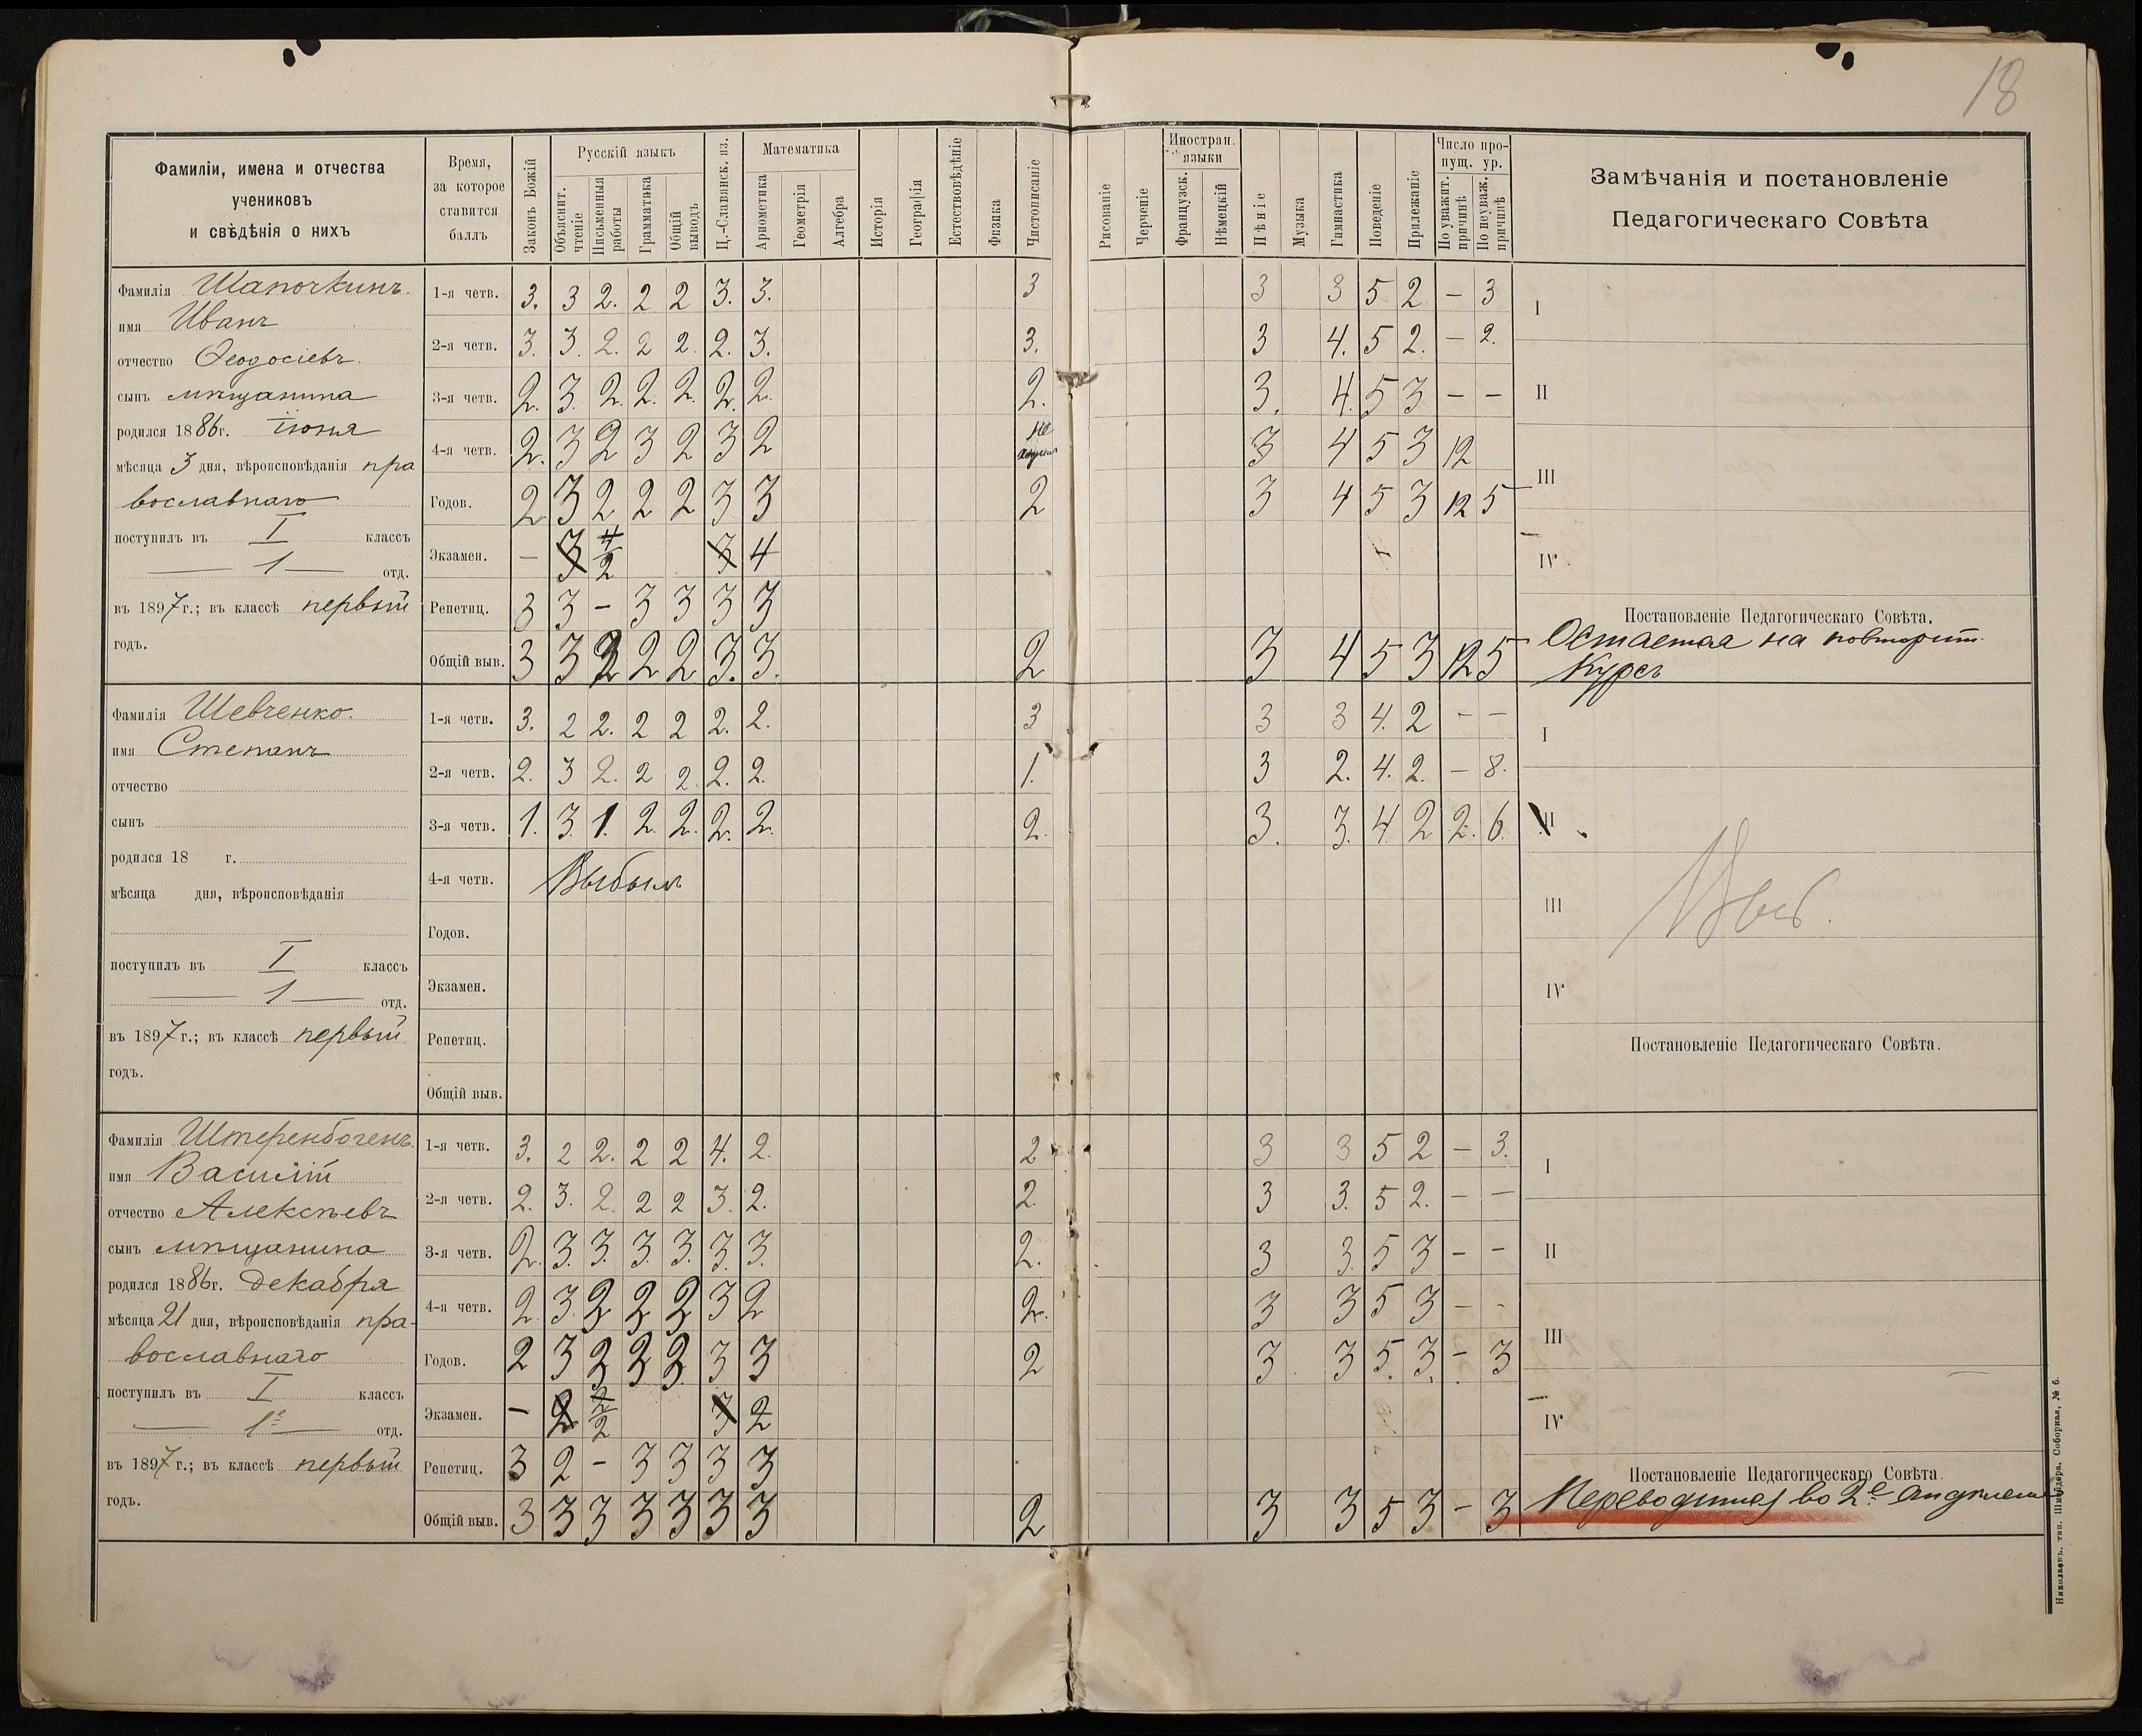 18
Фамиліи, имена и отчества
учениковъ
и свѣдѣнія о нихъ
Время,
за которое
ставится
баллъ
Законъ Божій
Русскій языкъ
Объяснит. чтеніе
Письменныя работы
Грамматика
Общій выводъ
Ц.-Славянск. яз.
Математика
Ариѳметика
Геометрія
Алгебра
Исторія
Географія
Естествовѣдѣніе
Физика
Чистописаніе
Рисованіе
Черченіе
Иностран. языки
Французск.
Нѣмецкій
Пѣніе
Музыка
Гимнастика
Поведеніе
Прилежаніе
Число пропущ. ур.
По уважит. причинѣ
По неуваж. причинѣ
Замѣчанія и постановленіе
Педагогическаго Совѣта
Фамилія Шапочкинъ.
имя Иванъ
отчество Ѳеодосіевъ.
сынъ мѣщанина
родился 1886г. іюня
мѣсяца 3 дня, вѣроисповѣданія пра
вославнаго
поступилъ въ I классъ
— 1 — отд.
въ 1897г.; въ классѣ первый
годъ.
1-я четв. 3. 3 2. 2 2 3. 3. 3 3 3 5 2 – 3
2-я четв. 3. 3. 2. 2 2. 2. 3. 3. 3 4. 5 2. – 2.
3-я четв. 2. 3. 2. 2. 2. 2. 2. 2. 3. 4. 5 3 – –
4-я четв. 2. 3 2 3 2 3 2 не 3 4 5 3 12
Годов. 2 3 2 2 2 3 3 2 3 4 5 3 12 5
Экзамен. – 3 4/2 3 4
Репетиц. 3 3 – 3 3 3 3
Общій выв. 3 3 2 2 2 3. 3. 2 3 4 5 3 12 5
I
II
III
IV
Постановленіе Педагогическаго Совѣта.
Остается на повторит.
курсъ
Фамилія Шевченко.
имя Степанъ
отчество
сынъ
родился 18 г.
мѣсяца дня, вѣроисповѣданія
поступилъ въ I классъ
— 1 — отд.
въ 1897г.; въ классѣ первый
годъ.
1-я четв. 3. 2 2. 2 2 2. 2. 3 3 3 4. 2 – –
2-я четв. 2. 3 2. 2 2. 2. 2. 1. 3 2. 4. 2. – 8.
3-я четв. 1. 3. 1. 2. 2. 2. 2. 2. 3. 3. 4 2 2. 6.
4-я четв. Выбылъ
Годов.
Экзамен.
Репетиц.
Общій выв.
I
II
III
Выб.
IV
Постановленіе Педагогическаго Совѣта.
Фамилія Штеренбогенъ.
имя Василій
отчество Алексѣевъ
сынъ мѣщанина
родился 1886г. декабря
мѣсяца 21 дня, вѣроисповѣданія пра-
вославнаго
поступилъ въ I классъ
— 1е — отд.
въ 1897г.; въ классѣ первый
годъ.
1-я четв. 3. 2 2. 2 2 4. 2. 2 3 3 5 2 – 3.
2-я четв. 2. 3. 2. 2 2 3. 2. 2. 3 3. 5 2. – –
3-я четв. 2. 3. 3. 3. 3. 3. 3. 2. 3 3. 5 3 – –
4-я четв. 2. 3. 2 2 2 3 2 2. 3 3 5 3 – -
Годов. 2 3 3 3 3 3 3 2 3 3 5. 3. – 3
Экзамен. – 2 2/2 3 2
Репетиц. 3 2 – 3 3 3 3
Общій выв. 3 3 3 3 3 3 3 2 3 3 5 3 – 3
I
II
III
IV
Постановленіе Педагогическаго Совѣта.
Переводится во 2е
Николаевъ, тип. Шнейдера, Соборная, № 6.